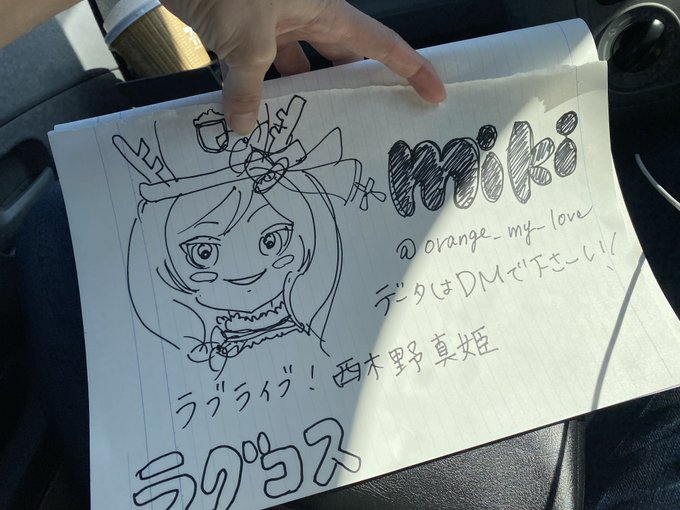 miki
@orange_my_love
データはDMで下さーい!
ラブライブ!西木野真姫
ラグコス